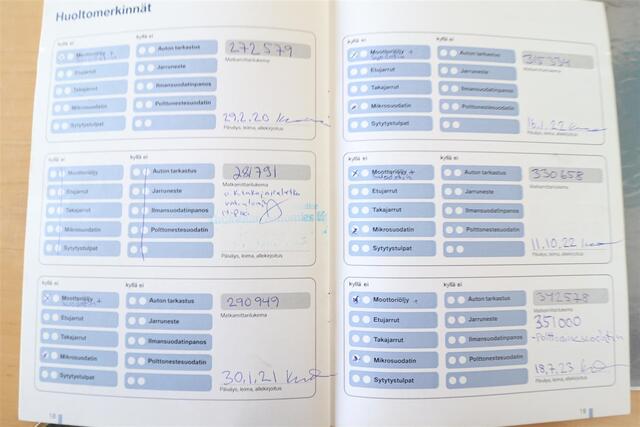 Huoltomerkinnät
kyllä ei kyllä ei
Moottoriöljy + Auton tarkastus 272579
Etujarrut Jarruneste Matkamittarilukema
Takajarrut Ilmansuodatinpanos
Mikrosuodatin Polttonestesuodatin
29.2.20
Sytytystulpat Päiväys, leima, allekirjoitus
kyllä ei kyllä ei
Moottoriöljy Auton tarkastus 281791
Matkamittarilukema
Etujarrut Jarruneste
Takajarrut Ilmansuodatinpanos
Mikrosuodatin Polttonestesuodatin
Sytytystulpat Päiväys, leima, allekirjoitus
kyllä ei kyllä ei
Moottoriöljy + Auton tarkastus 290949
Matkamittarilukema
Etujarrut Jarruneste
Takajarrut Ilmansuodatinpanos
Mikrosuodatin Polttonestesuodatin
30.1.21
Sytytystulpat Päiväys, leima, allekirjoitus
18
kyllä ei kyllä ei
Moottoriöljy + Auton tarkastus 315334
Matkamittarilukema
Etujarrut Jarruneste
Takajarrut Ilmansuodatinpanos
Mikrosuodatin Polttonestesuodatin
15.1.22
Sytytystulpat Päiväys, leima, allekirjoitus
kyllä ei kyllä ei
Moottoriöljy + Auton tarkastus 330658
Matkamittarilukema
Etujarrut Jarruneste
Takajarrut Ilmansuodatinpanos
Mikrosuodatin Polttonestesuodatin
11.10.22
Sytytystulpat Päiväys, leima, allekirjoitus
kyllä ei kyllä ei
Moottoriöljy + Auton tarkastus 342578
Matkamittarilukema
Etujarrut Jarruneste 351000
Takajarrut Ilmansuodatinpanos -Polttoainesuodatin
Mikrosuodatin Polttonestesuodatin
18.7.23
Sytytystulpat Päiväys, leima, allekirjoitus
19